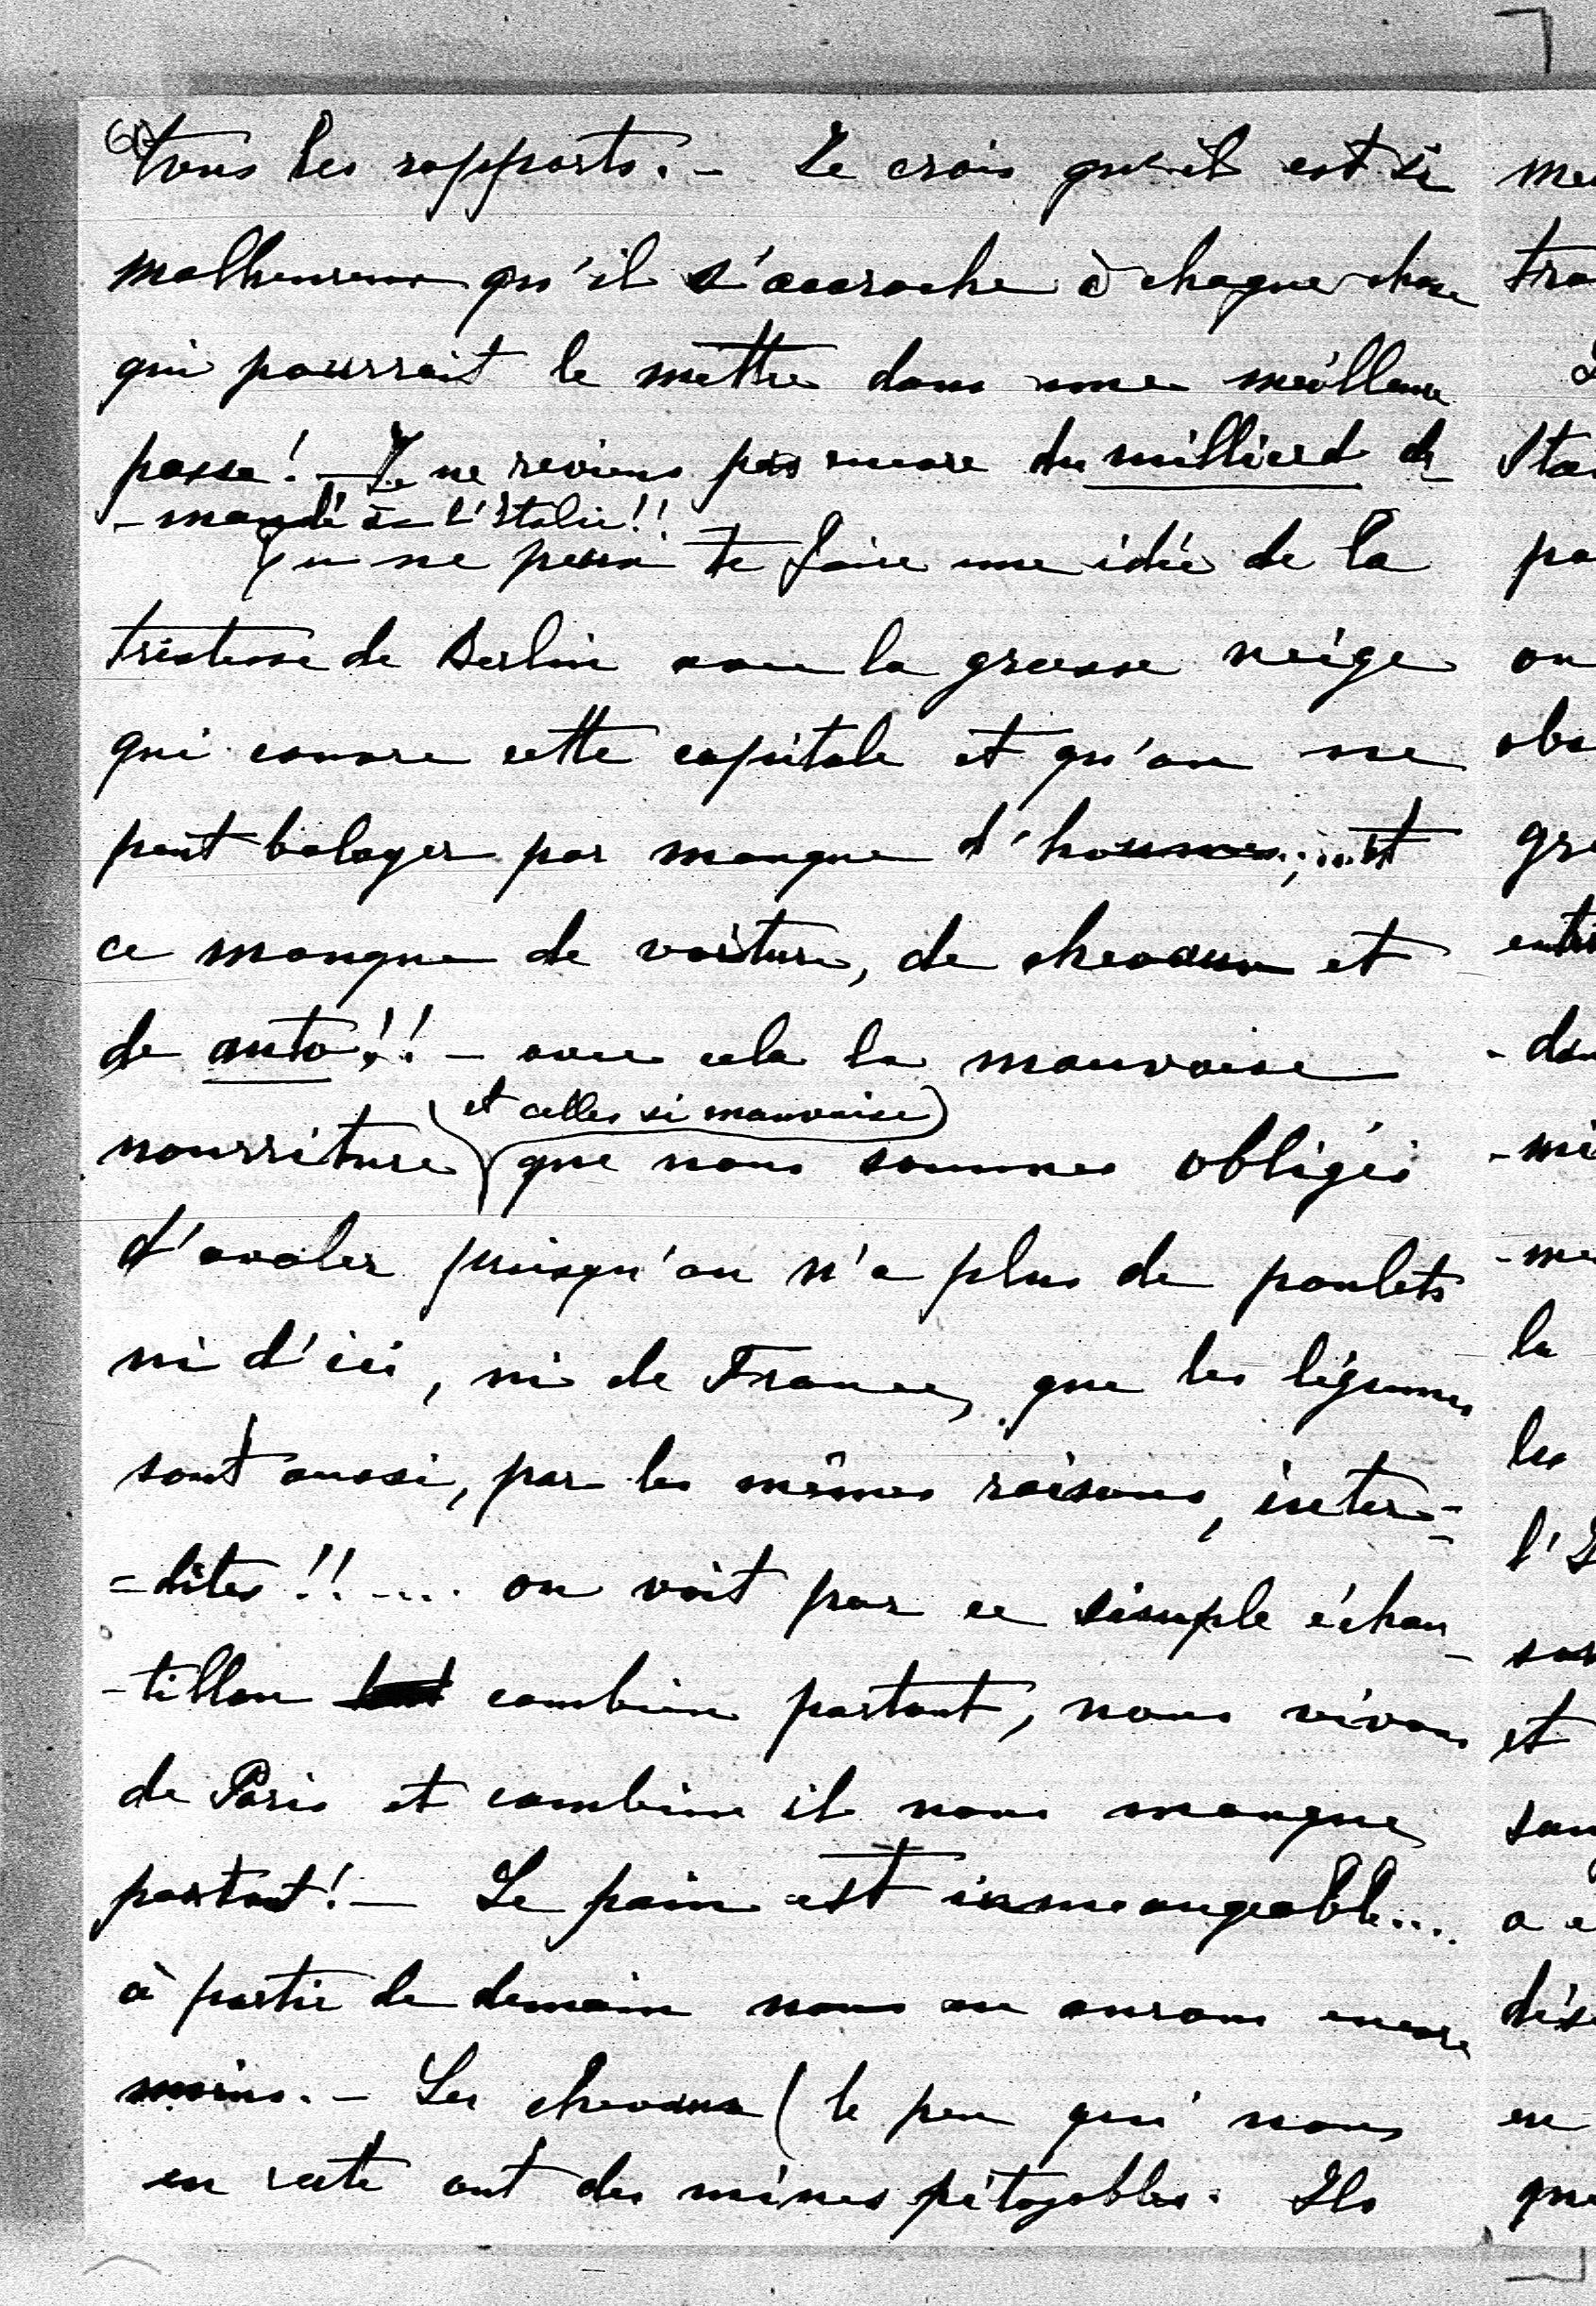 6)
tous les rapports. – Je crois qu'il est si
malheureux qu'il s'accroche à chaque chose
qui pourrait le mettre dans une meilleure
passe! – Je ne reviens pas encore du milliard de-
-mandé à l'Italie!!
Tu ne peux te faire une idée de la
tristesse de Berlin avec la grosse neige
qui couvre cette capitale et qu'on ne
peut balayer par manque d'hommes; ... et
ce manque de voiture, de chevaux et
de auto!! – avec cela la mauvaise
et celles si mauvaise)
nourriture (que nous sommes obligés
d'avaler puisqu'on n'a plus de poulets
ni d'ici, ni de France, que les légumes
sont aussi, par les mêmes raisons, inter=
=dites!! .... on voit par ce simple échan-
-tillon combien partout, nous vivons
de Paris et combien il nous manque
partout! – Le pain est immangeable...
à partir de demain nous en aurons encore
moins. – Les chevaux (le peu qui nous
en reste ont des mines pitoyables. Ils